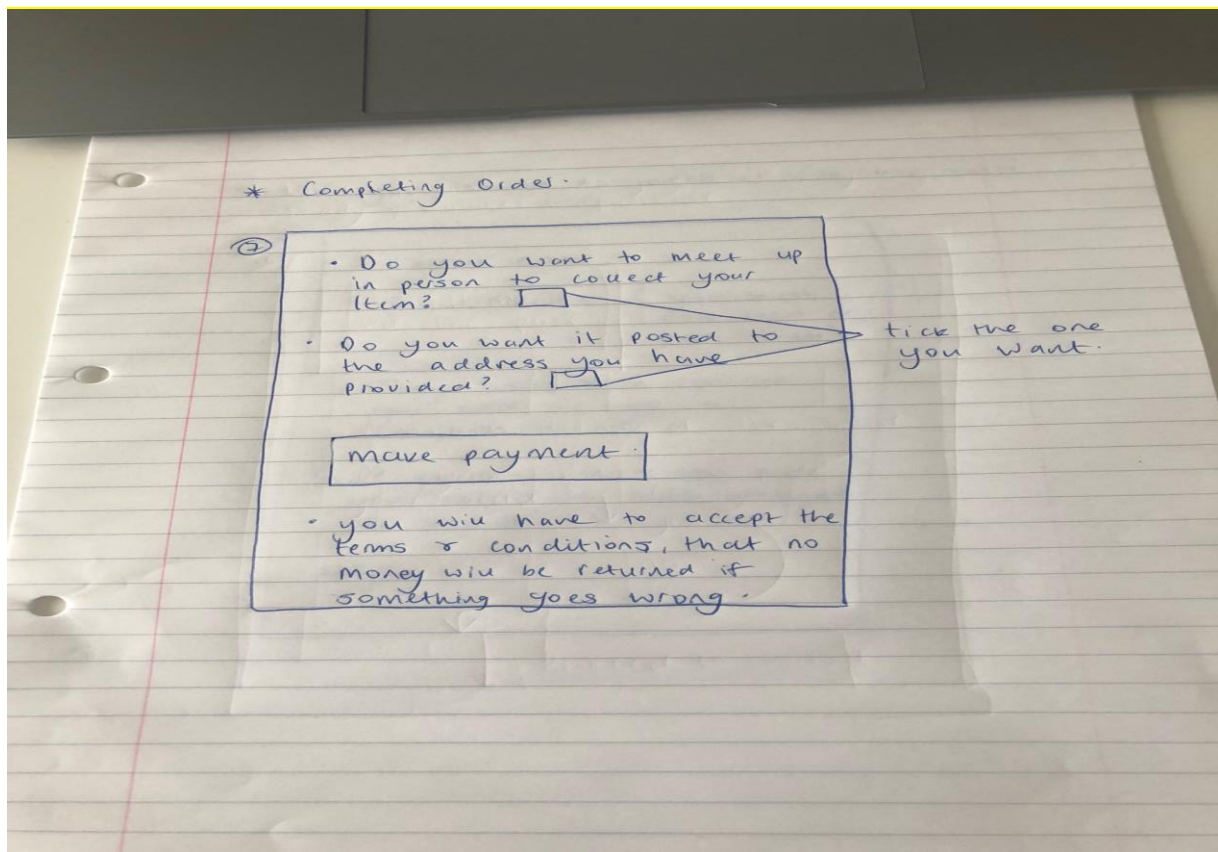 * Completing Order.
⑦
• Do you want to meet up
in person to collect your
Item?
• Do you want it posted to
the address you have
provided?
tick the one
you want.
make payment.
• you will have to accept the
terms & conditions, that no
money will be returned if
something goes wrong.